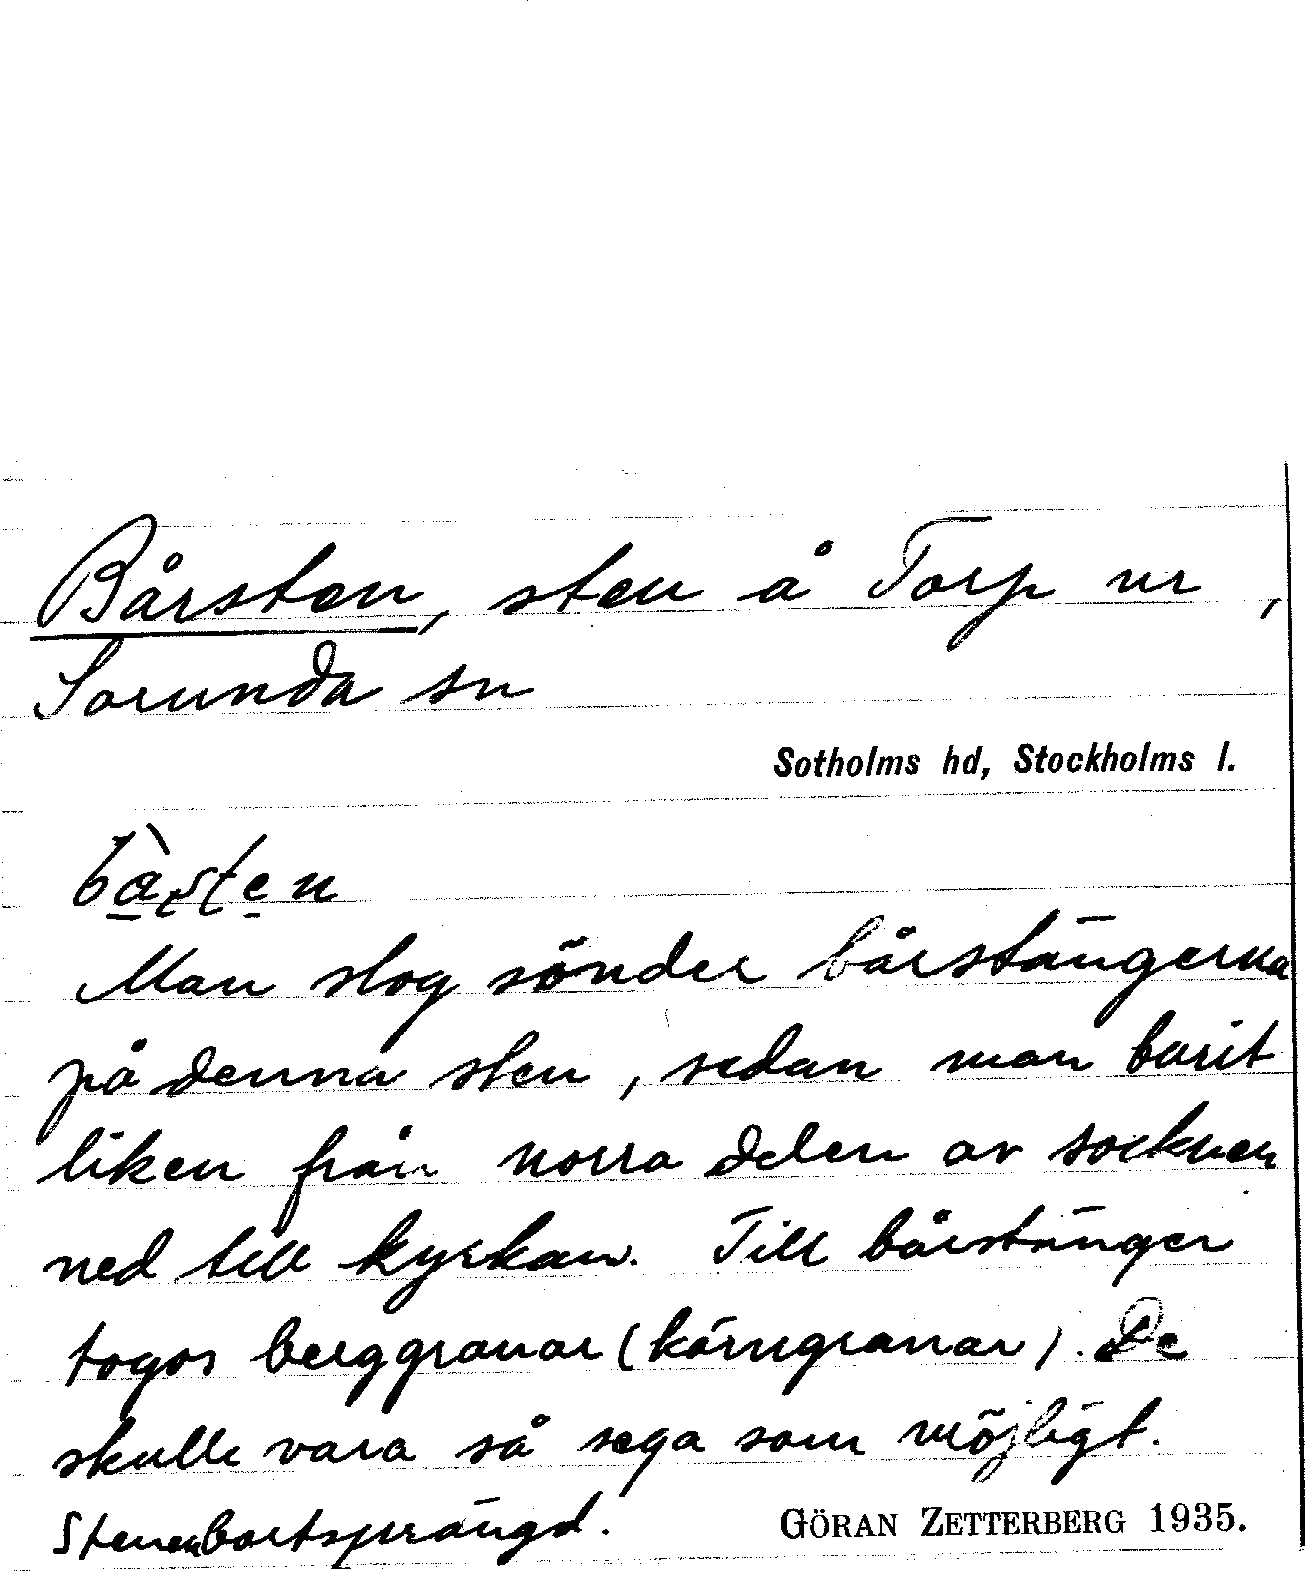 Bårsten, sten å Torp nr ,
Sorunda sn
Sotholms hd, Stockholms l.
Man slog sönder bårstängerna
på denna sten, sedan man burit
liken från norra delen av socknen
ned till kyrkan. Till bårstänger
togos berggranar (kärngranar). De
skulle vara så sega som möjligt.
Stenen bortsprängd.
GÖRAN ZETTERBERG 1935.